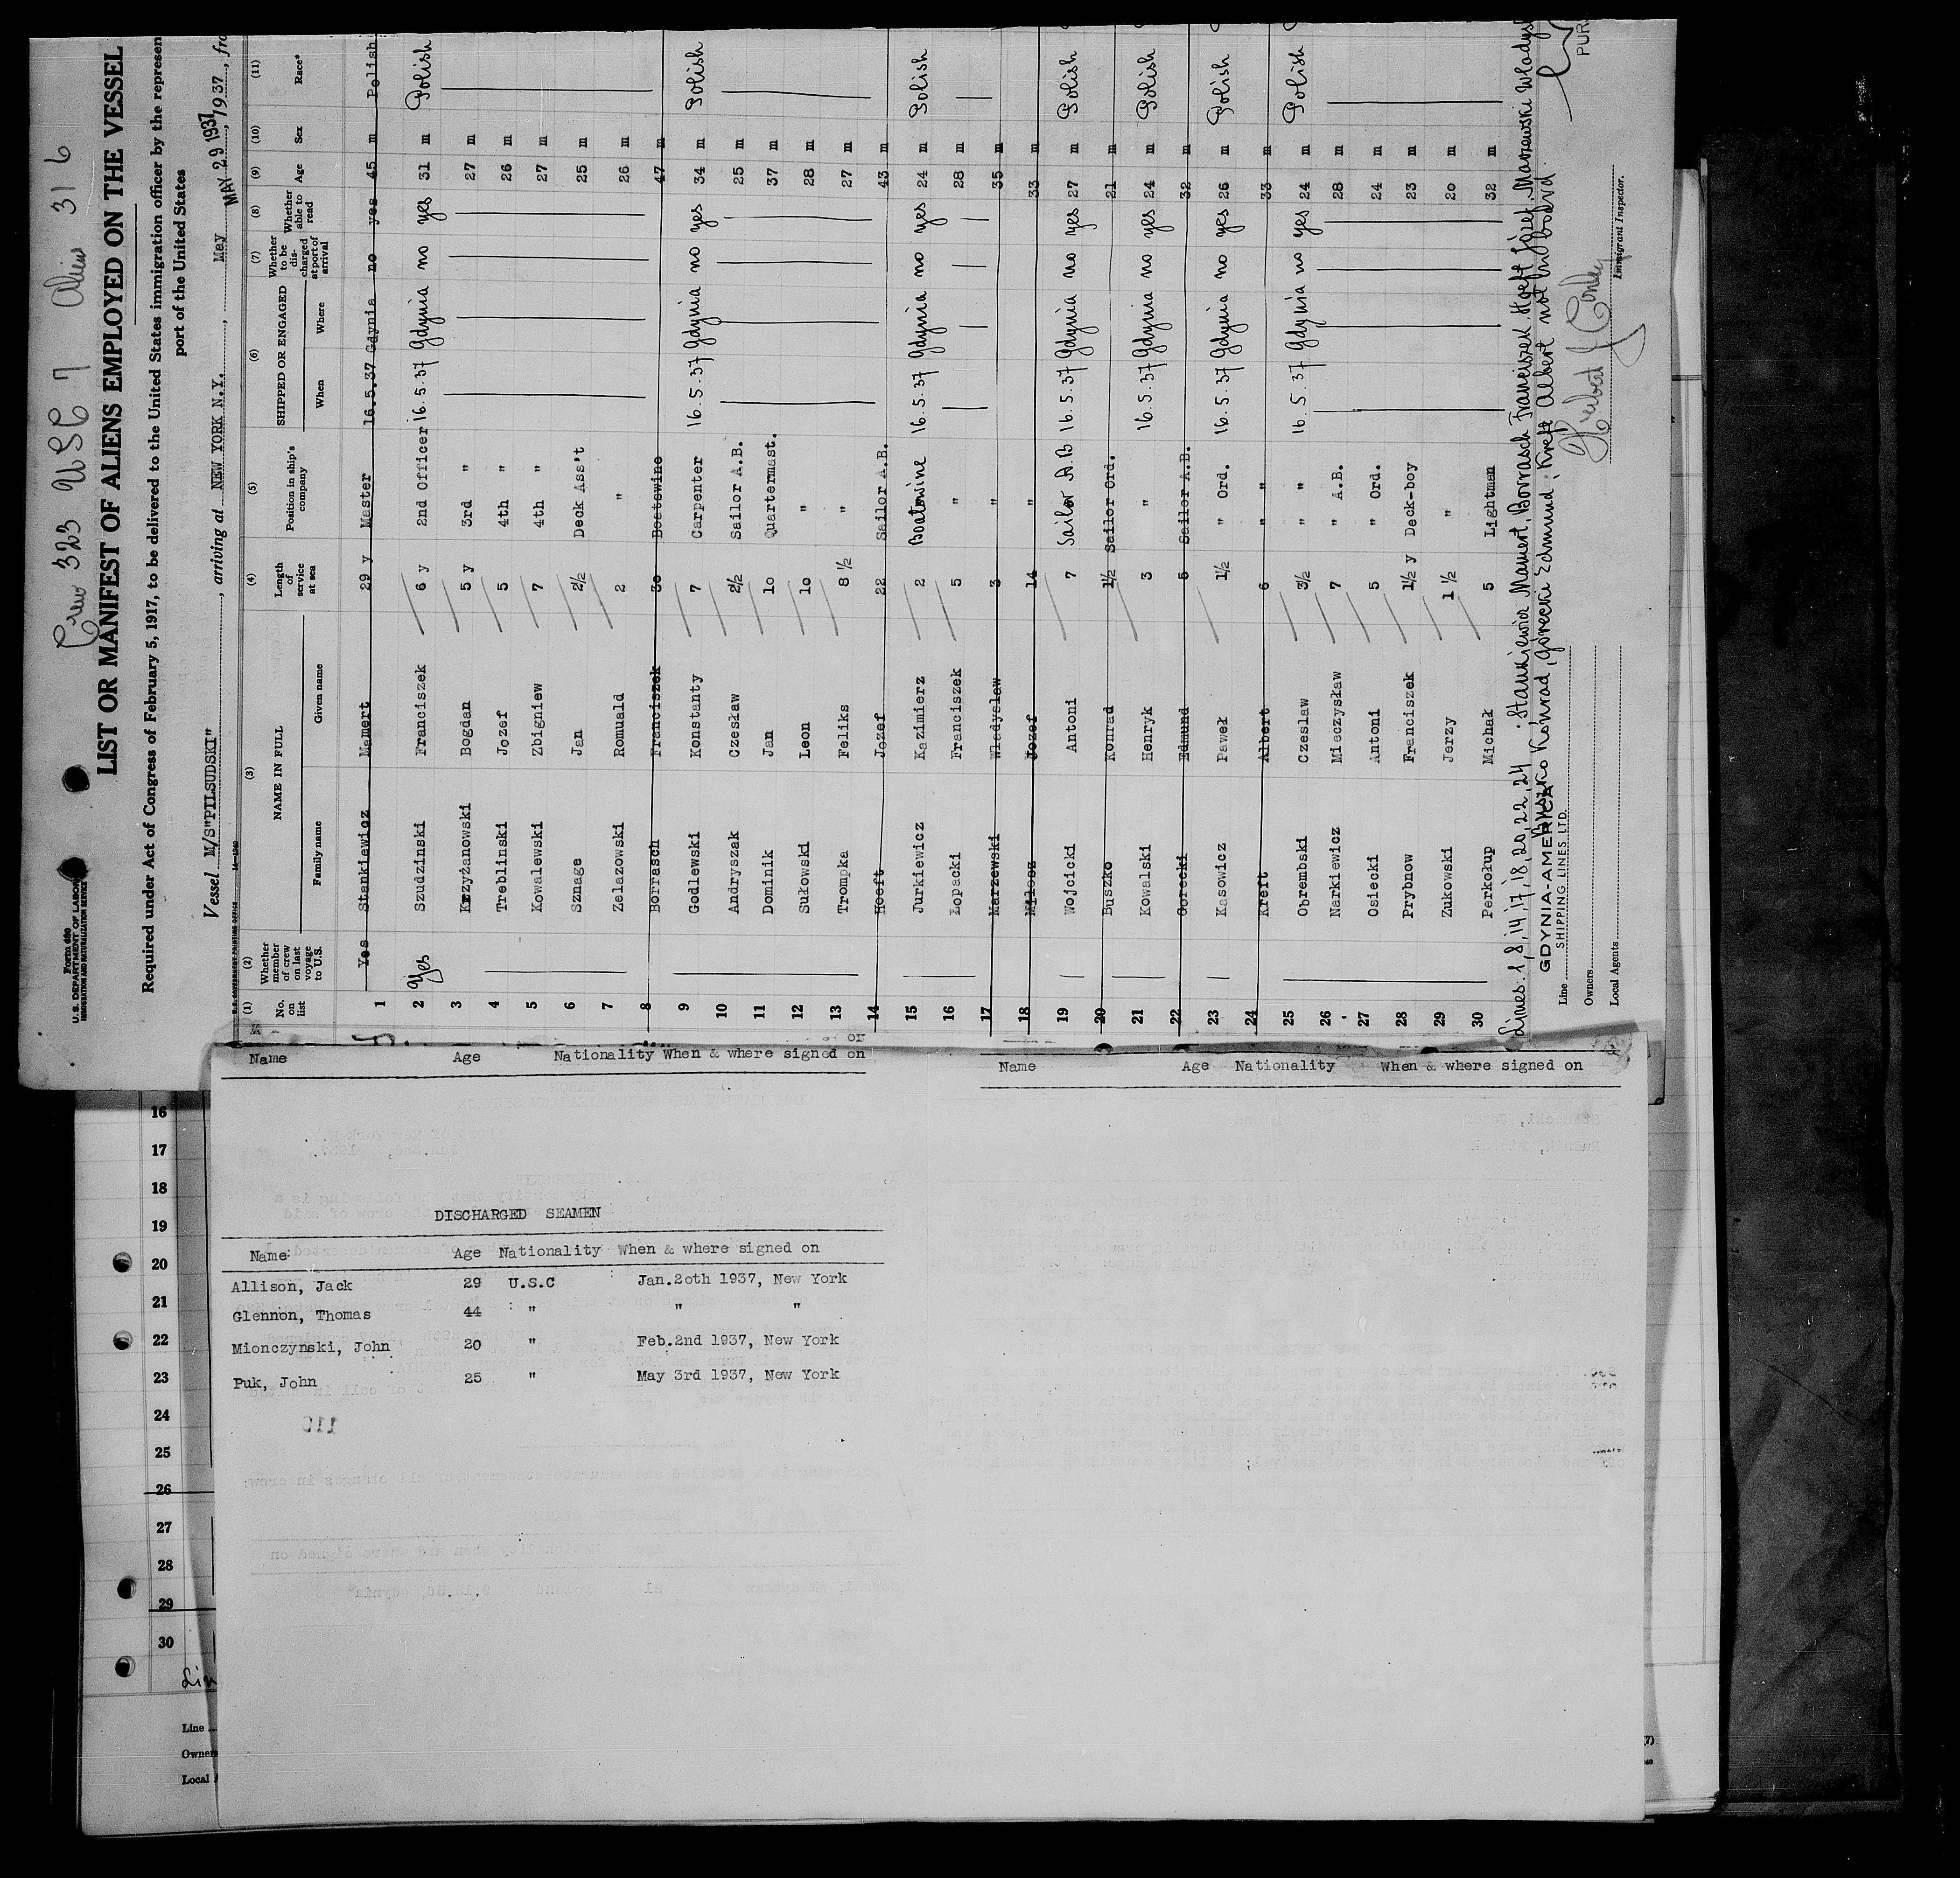 Crew 323 USC 7 Alien 316
Form 680
U. S. DEPARTMENT OF LABOR
IMMIGRATION AND NATURALIZATION SERVICE
LIST OR MANIFEST OF ALIENS EMPLOYED ON THE VESSEL
Required under Act of Congress of February 5, 1917, to be delivered to the United States immigration officer by the represen
port of the United States
Vessel M/S"PILSUDSKI", arriving at NEW YORK N.Y., May MAY 29 1937, 1937, fro
(1) (2) (3) (4) (5) (6) (7) (8) (9) (10) (11)
No. on list Whether member of crew on last voyage to U.S. NAME IN FULL Length of service at sea Position in ship's company SHIPPED OR ENGAGED Whether to be discharged at port of arrival Whether able to read Age Sex Race*
Family name Given name When Where
1 Yes Stankiewicz Mamert 29 y Master 16.5.37 Gdynia no yes 45 m Polish
2 Yes Szudzinski Franciszek 6 y 2nd Officer 16.5.37 Gdynia no yes 31 m Polish
3 Krzyżanowski Bogdan 5 y 3rd " 27 m
4 Treblinski Jozef 5 4th " 26 m
5 Kowalewski Zbigniew 7 4th " 27 m
6 Sznage Jan 2½ Deck Ass't 25 m
7 Zelazowski Romuald 2 " 26 m
8 Borrasch Franciszek 30 Boatswine 47 m
9 Godlewski Konstanty 7 Carpenter 16.5.37 Gdynia no yes 34 m Polish
10 Andryszak Czesław 2½ Sailor A.B. 25 m
11 Dominik Jan 10 Quartermast. 37 m
12 Sułowski Leon 10 " 28 m
13 Trompka Feliks 8 ½ " 27 m
14 Hoeft Jozef 22 Sailor A.B. 43 m
15 Jurkiewicz Kazimierz 2 Boatswine 16.5.37 Gdynia no yes 24 m Polish
16 Łopacki Franciszek 5 " 28 m
17 Marzewski Władysław 3 " 35 m
18 Miłosz Jozef 14 " 33 m
19 Wojcicki Antoni 7 Sailor A.B 16.5.37 Gdynia no yes 27 m Polish
20 Buszko Konrad 1½ Sailor Ord. 21 m
21 Kowalski Henryk 3 " 16.5.37 Gdynia no yes 24 m Polish
22 Gorecki Edmund 5 Sailor A.B. 32 m
23 Kasowicz Paweł 1½ " Ord. 16.5.37 Gdynia no yes 26 m Polish
24 Kreft Albert 6 " 33 m
25 Obrembski Czeslaw 3½ " " 16.5.37 Gdynia no yes 24 m Polish
26 Narkiewicz Mieczysław 7 " A.B. 28 m
27 Osiecki Antoni 5 " Ord. 24 m
28 Prybnow Franciszek 1½ y Deck-boy 23 m
29 Zukowski Jerzy 1 ½ " 20 m
30 Perkołup Michał 5 Lightman 32 m
Lines: 1, 8, 14, 17, 18, 20, 22, 24 : Stankiewicz Mamert, Borrasch Franciszek Hoeft Józef, Marzewski Wladysł
Buszko Konrad, Górecki Edmund, Kreft Albert not on board.
GDYNIA-AMERICA
Line SHIPPING LINES LTD.
Owners
Local Agents
Immigrant Inspector.
PUR
Name Age Nationality When & where signed on
Name Age Nationality When & where signed on
DISCHARGED SEAMEN
Name Age Nationality When & where signed on
Allison, Jack 29 U.S.C Jan.20th 1937, New York
Glennon, Thomas 44 " " "
Mionczynski, John 20 " Feb.2nd 1937, New York
Puk, John 25 " May 3rd 1937, New York
110
16
17
18
19
20
21
22
23
24
25
26
27
28
29
30
Lin
Line
Owners
Local A